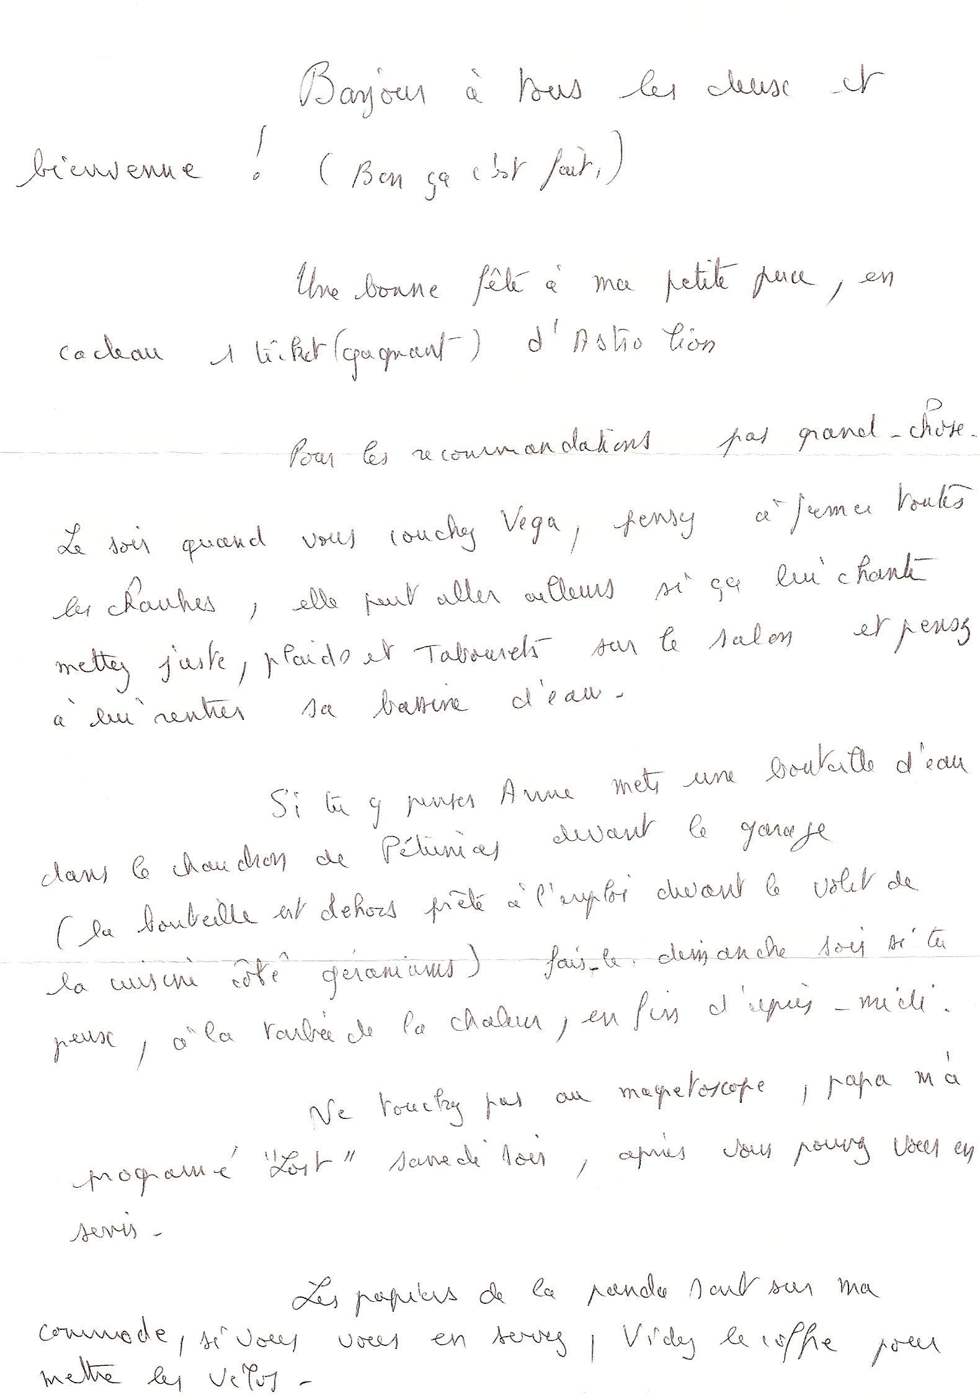 Bonjour à tous les deux et
bienvenue ! (Bon ça c'est fait,)
Une bonne fête à ma petite puce, en
cadeau 1 ticket (gagnant) d'Astro lion
Pour les recommandations pas grand-chose.
Le soir quand vous couchez Vega, pensez à fermer toutes
les chambres, elle peut aller ailleurs si ça lui chante
mettez juste, plaids et Tabourets sur le salon et pensez
à lui rentrer sa bassine d'eau.
Si tu y penses Anne mets une bouteille d'eau
dans le chaudron de Pétunias devant le garage
(la bouteille est dehors prête à l'emploi devant le volet de
la cuisine côté géraniums) fais-le dimanche soir si tu
peux, à la tombée de la chaleur, en fin d'après-midi.
Ne touchez pas au magnetoscope, papa m'a
programé "Lost" samedi soir, après vous pouvez vous en
servir.
Les papiers de la panda sont sur ma
commode, si vous vous en servez, Videz le coffre pour
mettre les vélos.